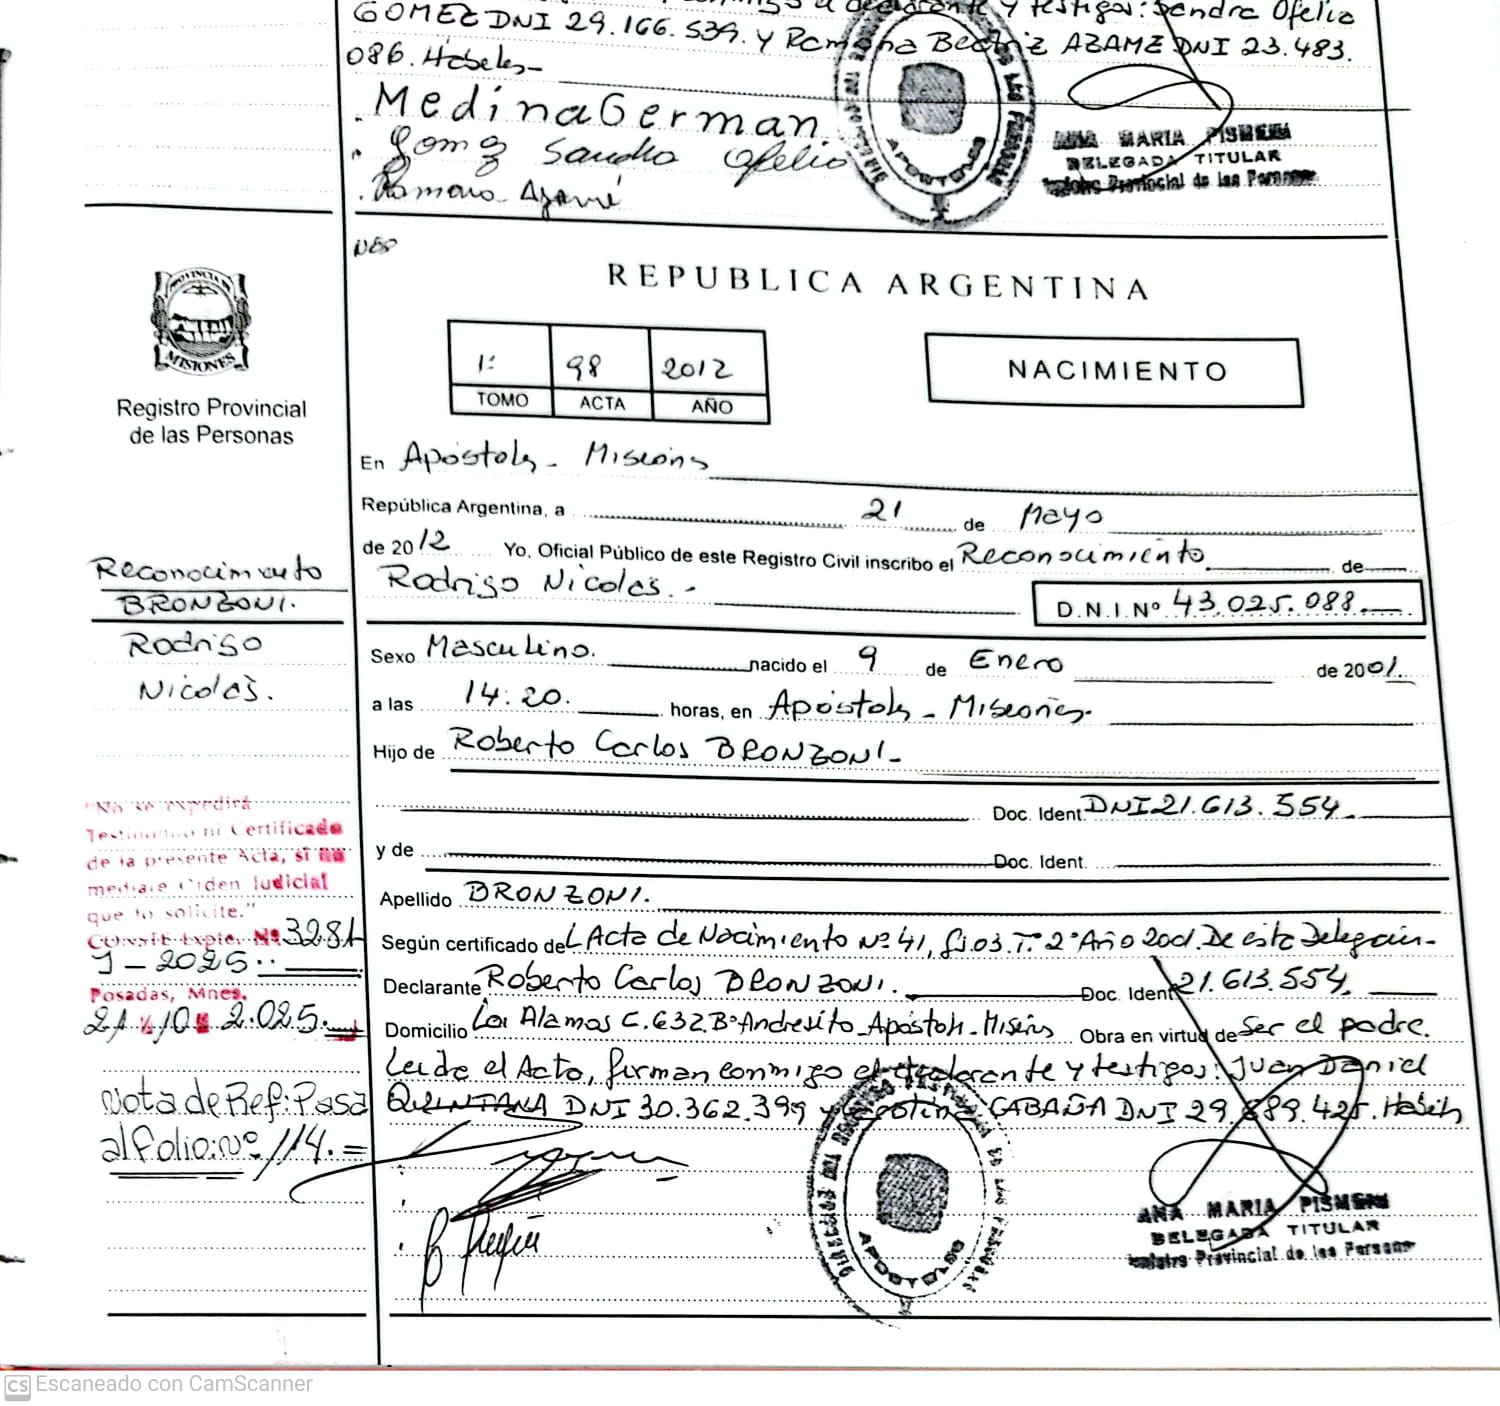 GOMEZ DNI 29.166.539. y Ramona Beatriz AZAME DNI 23.483.
086. Habeles-
Medina German
Gomez Sandra Ofelia
Ramona Azamé
ANA MARIA PISMENI
DELEGADA TITULAR
Registro Provincial de las Personas
APOSTOLES
REPUBLICA ARGENTINA
1: 98 2012
TOMO ACTA AÑO
NACIMIENTO
PROVINCIA DE
MISIONES
Registro Provincial
de las Personas
En Apóstoles - Misiones
República Argentina, a 21 de Mayo
de 2012 Yo, Oficial Público de este Registro Civil inscribo el Reconocimiento de
Rodrigo Nicolás.- D.N.I.Nº 43.025.088.
Reconocimiento
BRONZONI.
Rodrigo
Nicolás.
Sexo Masculino. nacido el 9 de Enero de 2001.
a las 14:20. horas, en Apóstoles - Misiones.
Hijo de Roberto Carlos BRONZONI.-
Doc. Ident. DNI 21.613.554.
y de Doc. Ident.
Apellido BRONZONI.
Según certificado del Acta de Nacimiento Nº 41, fj.03.Tº 2º Año 2001. De esta Delegación.-
Declarante Roberto Carlos BRONZONI. Doc. Ident. 21.613.554.
Domicilio Los Alamos C.632.Bº Andresito-Apóstoles-Misiones Obra en virtud de Ser el padre.
Leida el Acta, firman conmigo el declarante y testigos: Juan Daniel
QUINTANA DNI 30.362.399 y Carolina CABAÑA DNI 29.889.425. Habiles
"No se expedirá
Testimonio ni Certificado
de la presente Acta, si no
mediare Orden Judicial
que lo solicite."
CONSTE Expte. Nº 3281-
J-2025..
Posadas, Mnes.
21/10/2.025.
Nota de Ref: Pasa
al folio: Nº 114.=
APOSTOLES
ANA MARIA PISMENI
DELEGADA TITULAR
Registro Provincial de las Personas
CS Escaneado con CamScanner